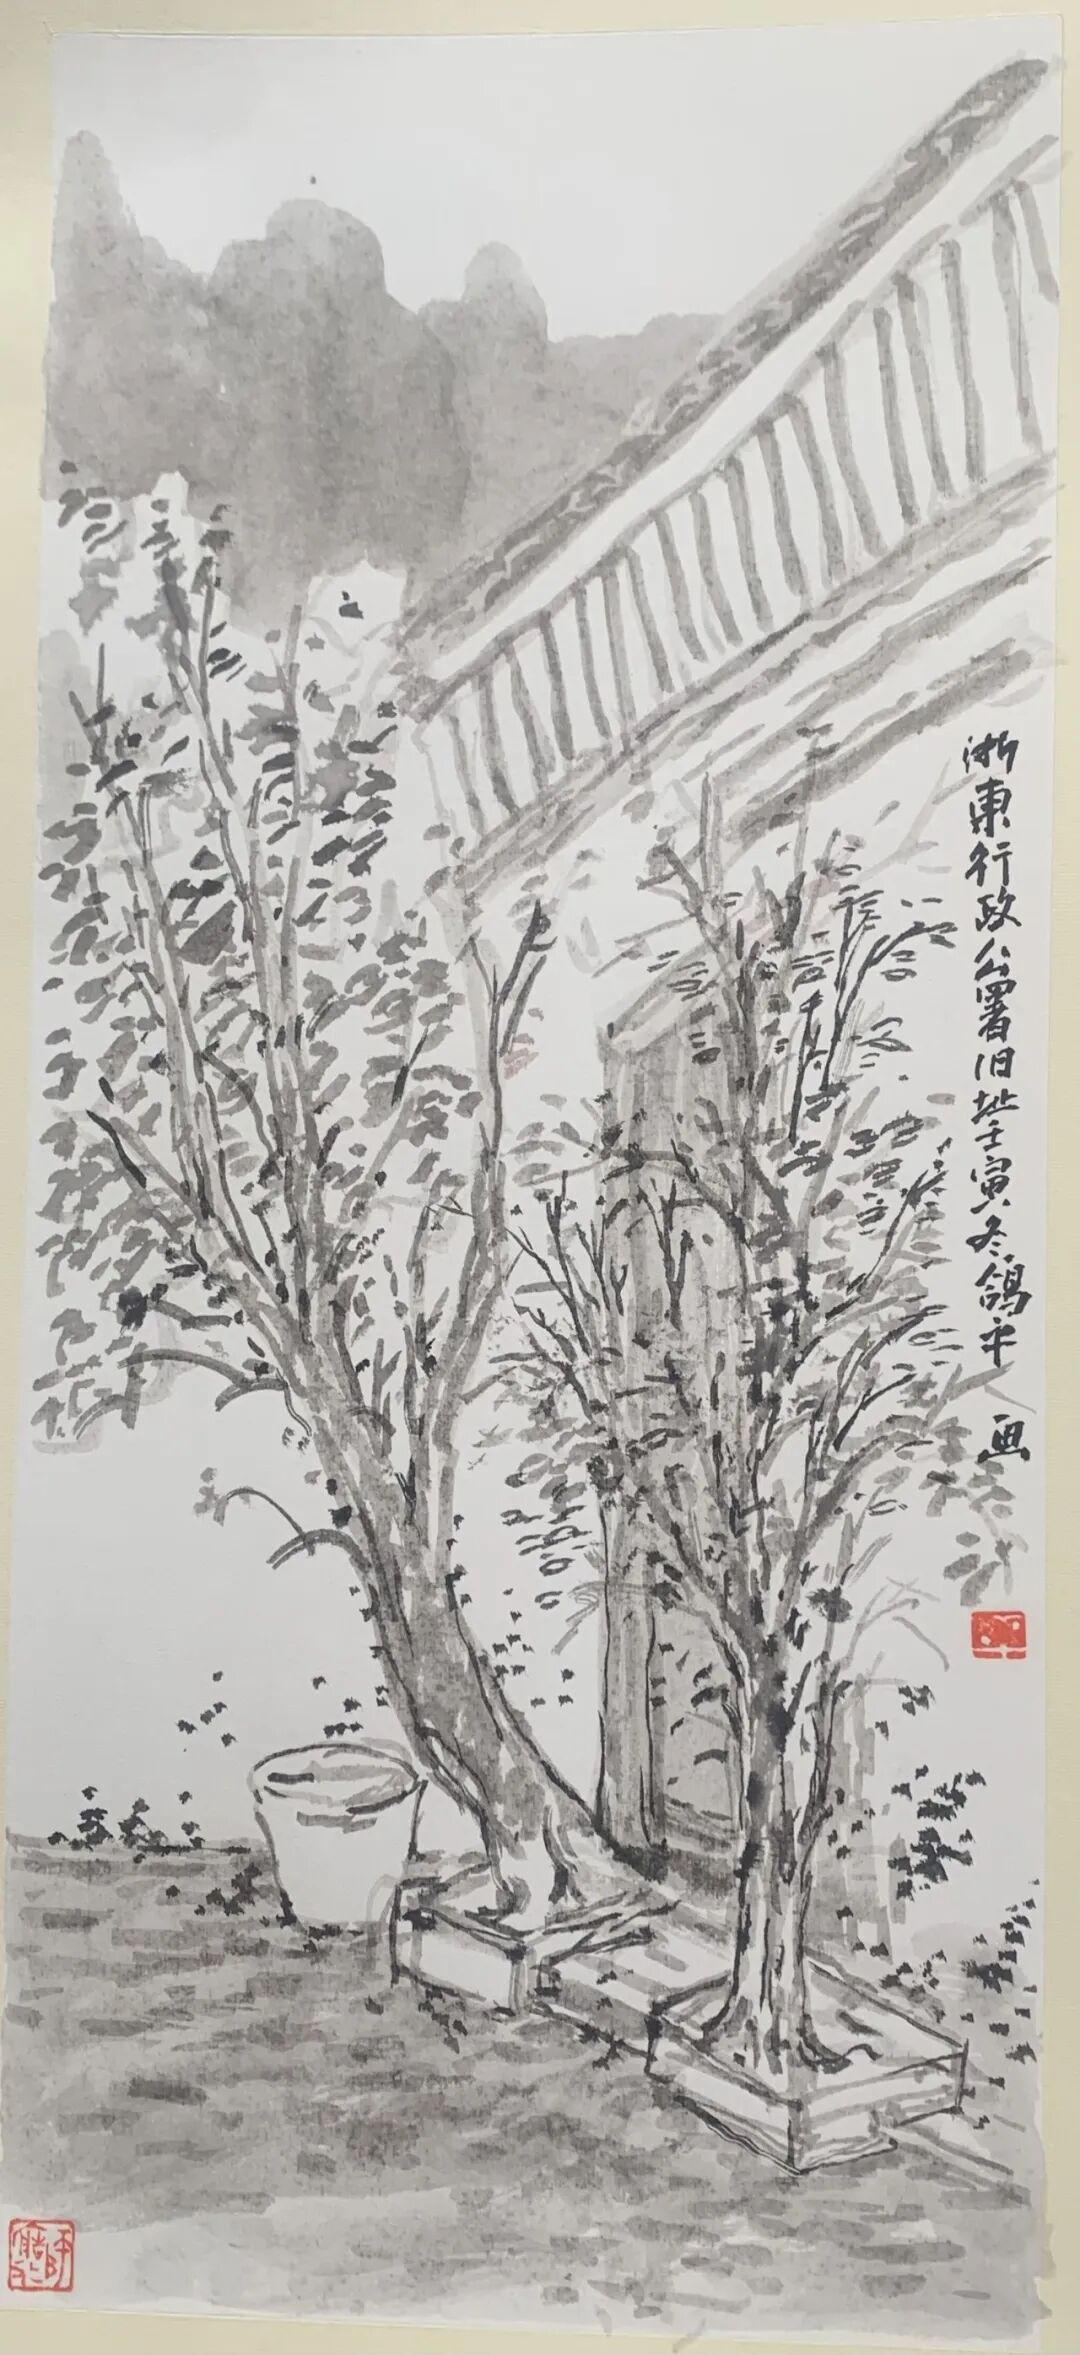 浙東行政公署旧址壬寅冬鸽平画